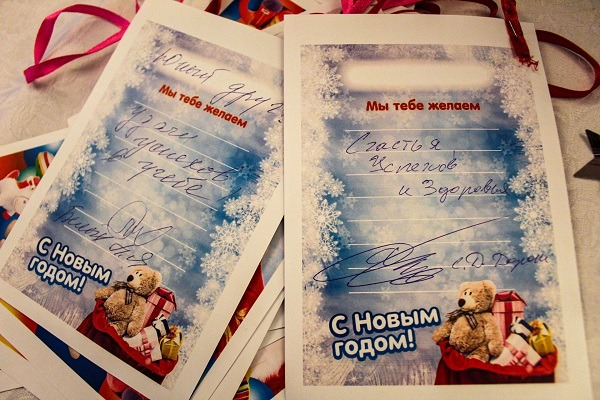 Юный друг
Мы тебе желаем
Удачи
успехов
в учёбе
С Новым
годом!
Мы тебе желаем
Счастья
Успехов
и Здоровья
С Новым
годом!